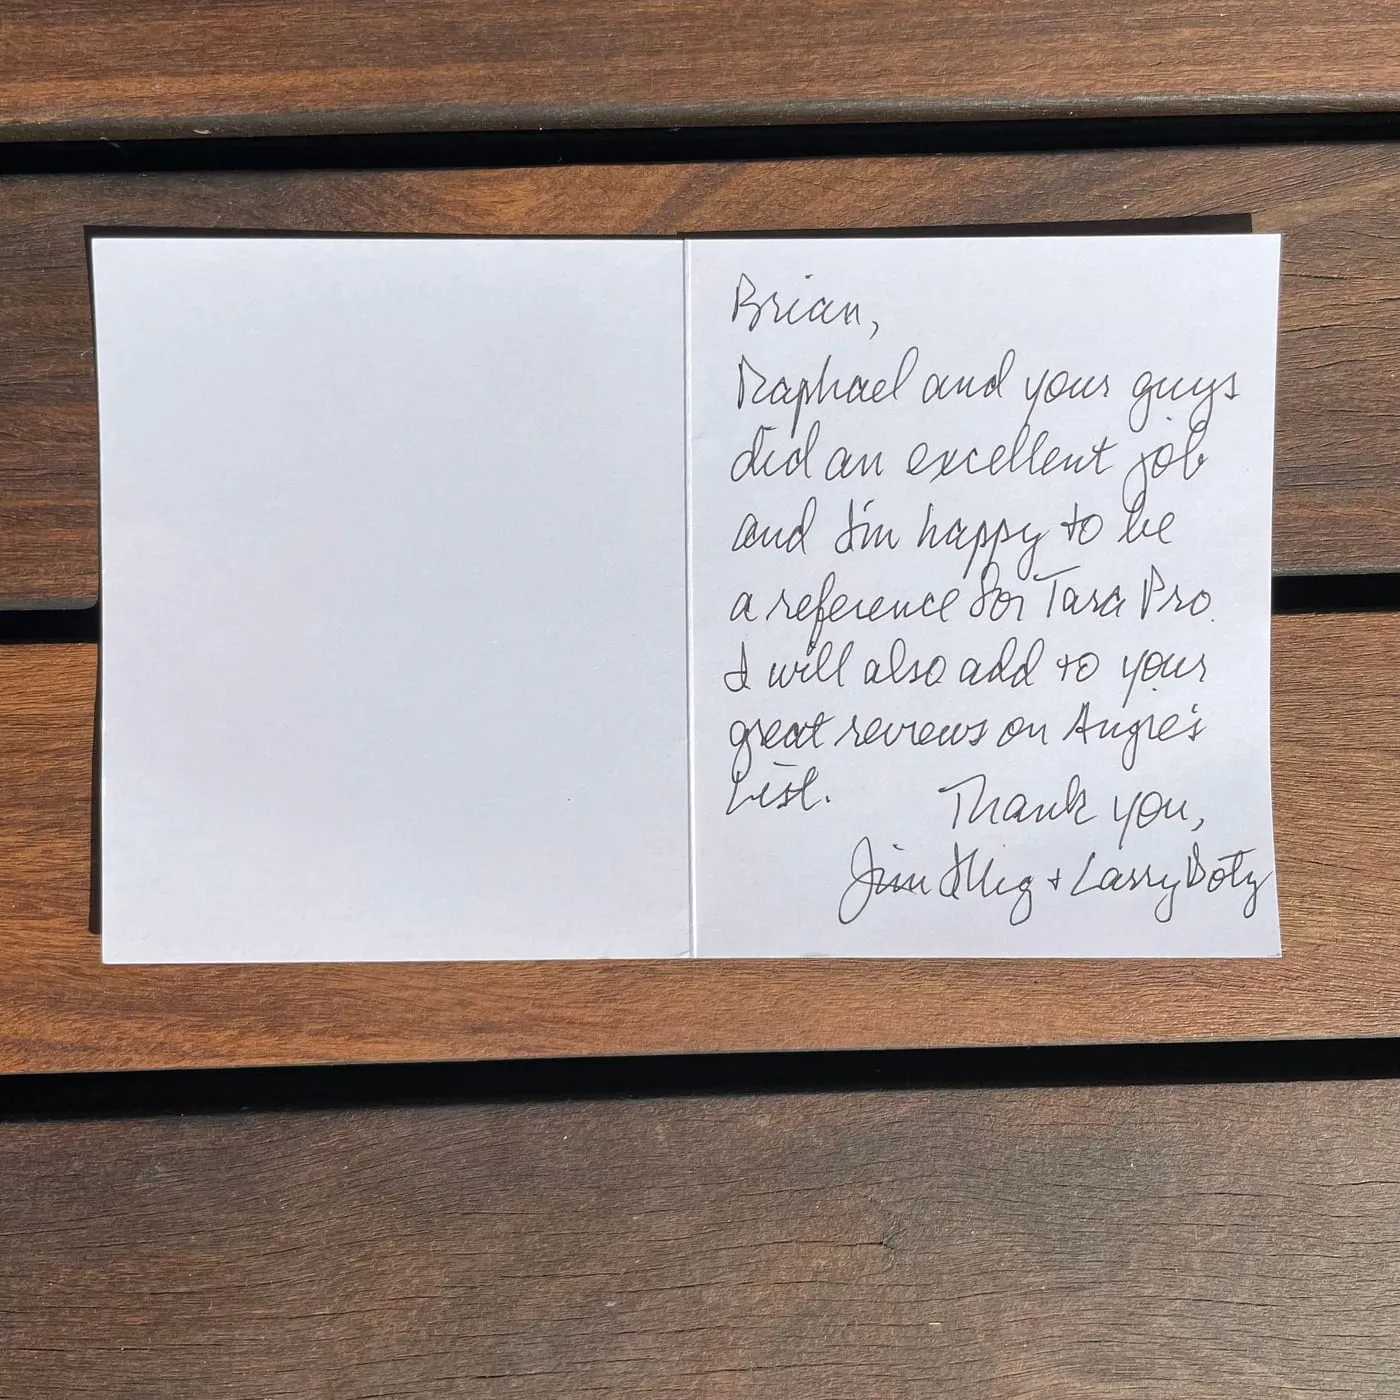 Brian,
Raphael and your guys
did an excellent job
and I'm happy to be
a reference for Tara Pro.
I will also add to your
great reviews on Angie's
List.
Thank you,
Jim Illig + Larry Doty